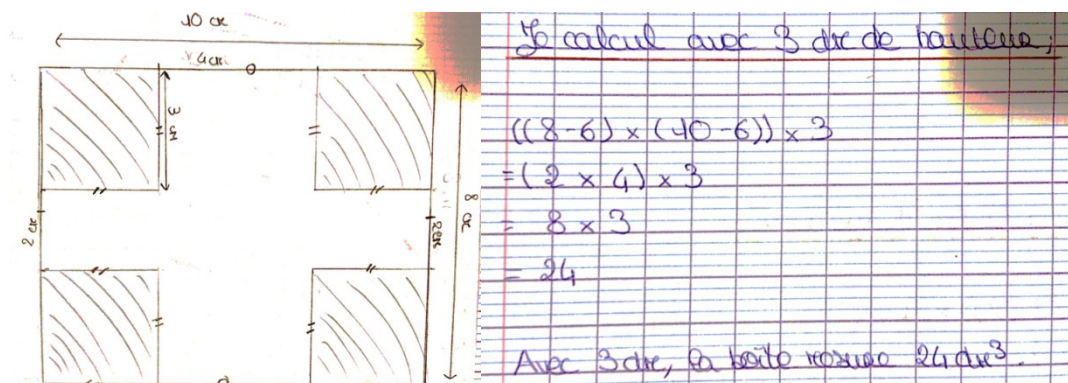 10 cm
4cm
3 cm
2 cm
2cm
8 cm
Je calcul avec 3 dm de hauteur;
((8-6) × (10-6)) × 3
=(2 × 4) × 3
= 8 × 3
= 24
Avec 3 dm, la boîte mesure 24 dm³.